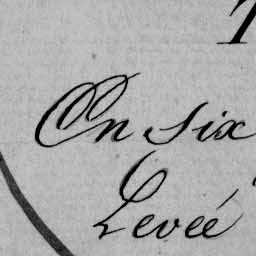 En six
Levée